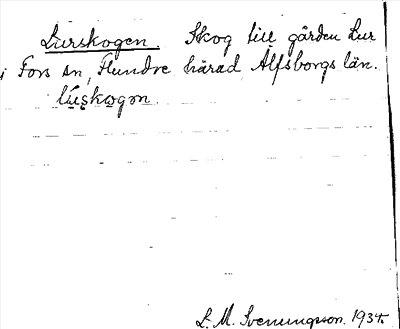 Lurskogen. Skog till gården Lur
i Fors sn, Flundre härad, Älfsborgs län.
lúʂkωgən
L. M. Svenungsson. 1934.